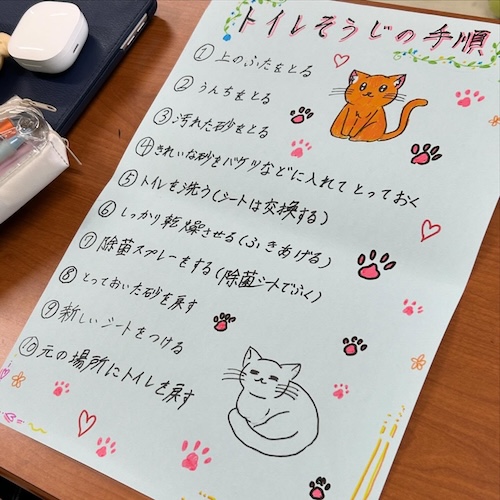 トイレそうじの手順
① 上のふたをとる
② うんちをとる
③ 汚れた砂をとる
④ きれいな砂をバケツなどに入れてとっておく
⑤ トイレを洗う(シートは交換する)
⑥ しっかり乾燥させる(ふきあげる)
⑦ 除菌スプレーをする(除菌シートでふく)
⑧ とっておいた砂を戻す
⑨ 新しいシートをつける
⑩ 元の場所にトイレを戻す